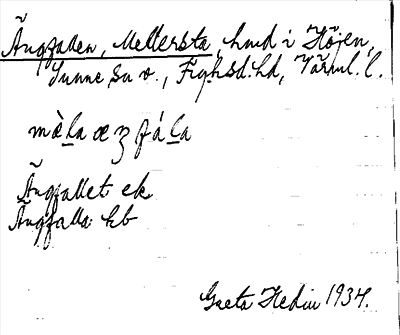 Ängfallen, Mellersta, hmd i Höjen,
Sunne sn o., Fryksd. hd, Värml. l.
mὰ̀la æʒ fála
Ängfallet ek
Ängfalla hb
Greta Hedin 1934.